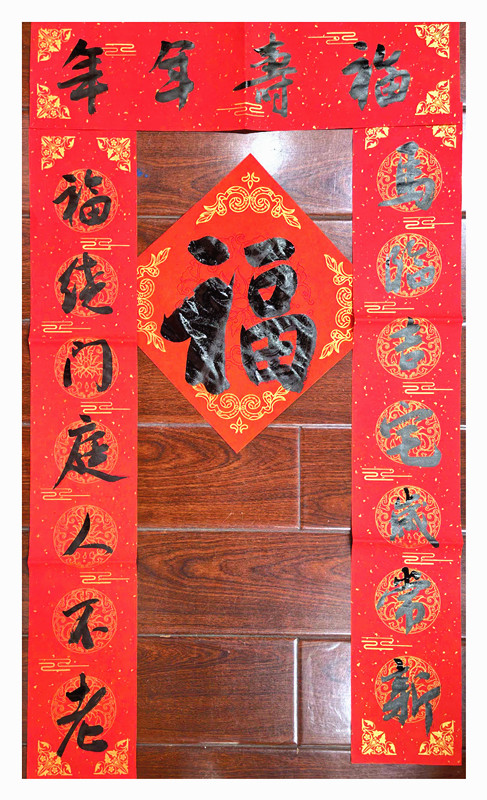 福壽年年
馬临吉宅歲常新
福绕门庭人不老
福